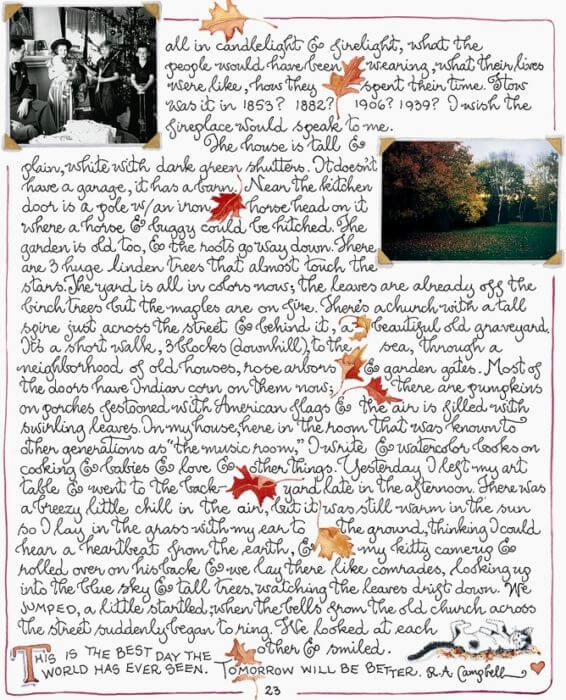 all in candlelight & firelight, what the
people would have been wearing, what their lives
were like, how they spent their time. How
was it in 1853? 1882? 1906? 1939? I wish the
fireplace would speak to me.
The house is tall &
plain, white with dark green shutters. It doesn't
have a garage, it has a barn. Near the kitchen
door is a pole w/an iron horse head on it
where a horse & buggy could be hitched. The
garden is old too, & the roots go way down. There
are 3 huge linden trees that almost touch the
stars. The yard is all in colors now; the leaves are already off the
birch trees but the maples are on fire. There's a church with a tall
spire just across the street & behind it, a beautiful old graveyard.
It's a short walk, 3 blocks (downhill), to the sea, through a
neighborhood of old houses, rose arbors & garden gates. Most of
the doors have Indian corn on them now; there are pumpkins
on porches festooned with American flags & the air is filled with
swirling leaves. In my house, here in the room that was known to
other generations as "the music room," I write & watercolor books on
cooking & babies & love & other things. Yesterday I left my art
table & went to the back yard late in the afternoon. There was
a breezy little chill in the air, but it was still warm in the sun
so I lay in the grass with my ear to the ground, thinking I could
hear a heartbeat from the earth, & my kitty came by &
rolled over on his back & we lay there like comrades, looking up
into the blue sky & tall trees, watching the leaves drift down. We
JUMPED, a little startled, when the bells from the old church across
the street suddenly began to ring. We looked at each
other & smiled.
THIS IS THE BEST DAY THE
WORLD HAS EVER SEEN. TOMORROW WILL BE BETTER. R.A. Campbell
23